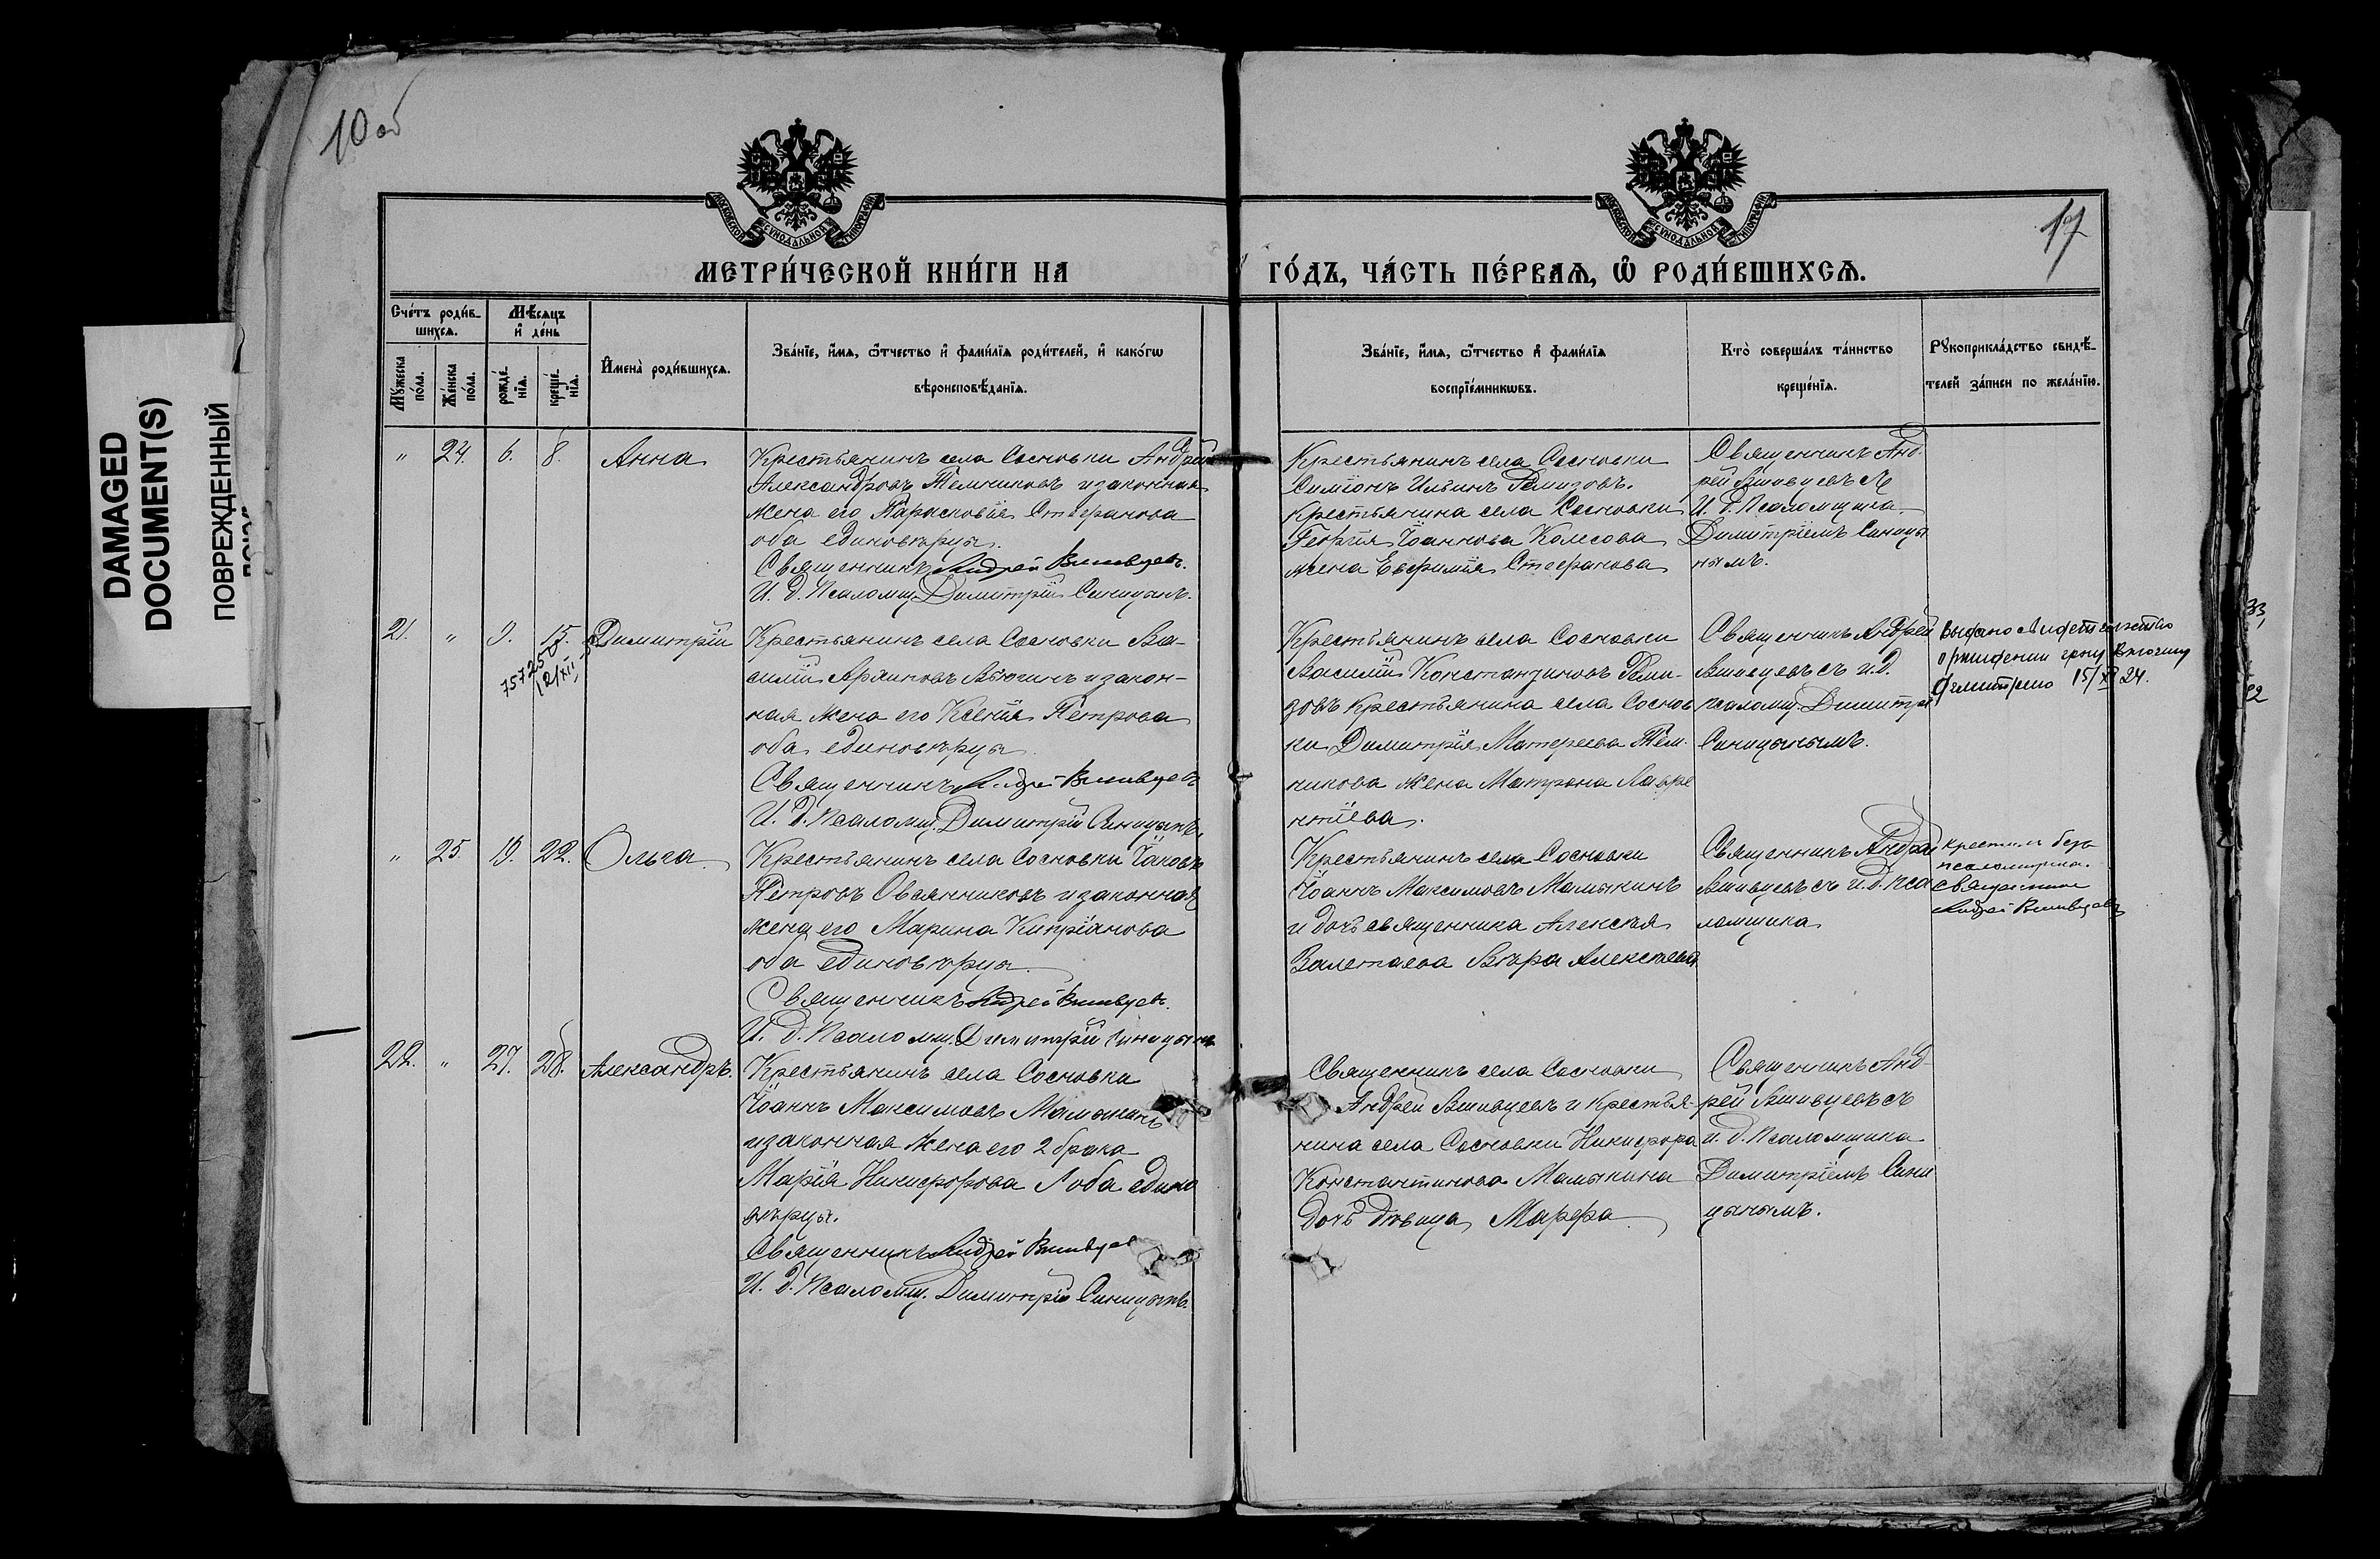 10 об
DAMAGED
DOCUMENT(S)
ПОВРЕЖДЕННЫЙ
МОСКОВСКОЙ СУНОДАЛЬНОЙ ТИПОГРАФІИ
МОСКОВСКОЙ СУНОДАЛЬНОЙ ТИПОГРАФІИ
17
МЕТРИ́ЧЕСКОЙ КНИ́ГИ НА ГО́ДЪ, ЧА́СТЬ ПЕ́РВАЯ, Ѿ РОДИ́ВШИХСЯ.
Сче́тъ роди́в-
шихся.
Мѣ́сяцъ
и де́нь
Му́жеска
по́ла.
Же́нска
по́ла.
рожде́-
нїя.
креще́-
нїя.
И҆мена̀ роди́вшихся.
Зва́нїе, и҆́мя, ѻ҆́тчество и҆ фами́лїя роди́телей, и҆ како́гѡ
вѣроисповѣ́данїя.
Зва́нїе, и҆́мя, ѻ҆́тчество и҆ фами́лїя
воспрїе́мникѡвъ.
Кто̀ соверша́лъ та́инство
креще́нїя.
Рукоприкла́дство свидѣ́-
телей за́писи по жела́нїю.
" 24. 6. 8. Анна
Крестьянинъ села Сосновки Андрей
Александровъ Темниковъ и законная
жена его Парасковія Стефанова
оба единовѣрцы.
Священникъ Андрей Вшивцевъ.
И. д. Псаломщ. Димитрій Синицынъ.
Крестьянинъ села Сосновки
Симіонъ Ильинъ Ремизовъ.
Крестьянина села Сосновки
Георгія Іоаннова Колесова
жена Евфимія Стефанова
Священникъ Анд-
рей Вшивцевъ съ
И. д. Псаломщика
Димитріемъ Синицы
нымъ.
21. " 9. 15. Димитрій
12/XII
Крестьянинъ села Сосновки Ва-
силій Архиповъ Вьюгинъ и закон-
ная жена его Ксенія Петрова
оба единовѣрцы
Священникъ Андрей Вшивцевъ
И. д. Псаломщ. Димитрій Синицынъ.
Крестьянинъ села Сосновки
Василій Константиновъ Реми-
зовъ Крестьянина села Соснов
ки Димитрія Матфеева Тем-
никова жена Матрона Лавре
нтіева.
Священникъ Андрей
Вшивцевъ съ и. д.
псаломщ. Димитр
Синицынымъ.
Выдано свидетельство
о рождении гр-ну Вьюгину
Дмитрию 15/XI 24.
" 25. 19. 22. Ольга
Крестьянинъ села Сосновки Іаковъ
Петровъ Овсянниковъ и законная
жена его Марина Кипріанова
оба единовѣрцы
Священникъ Андрей Вшивцевъ.
И. д. Псаломщ. Димитрій Синицынъ
Крестьянинъ села Сосновки
Іоаннъ Максимовъ Мамыкинъ
и дочь священника Алексѣя
Залетаева Вѣра Алексѣева
Священникъ Андрей
Вшивцевъ съ и. д. пса
ломщика
крестилъ безъ
псаломщика.
Священникъ
Андрей Вшивцевъ
22. " 27. 28. Александръ.
Крестьянинъ села Сосновки
Іоаннъ Максимовъ Мамыкинъ
и законная жена его 2 брака
Марія Никифорова оба едино
вѣрцы.
Священникъ Андрей Вшивцев
И. д. Псаломщ. Димитрій Синицынъ.
Священникъ села Сосновки
Андрей Вшивцевъ и Крестья-
нина села Сосновки Никифора
Константинова Мамыкина
дочь дѣвица Марфа
Священникъ Анд-
рей Вшивцевъ съ
и. д. Псаломщика
Димитріемъ Сини
цынымъ.